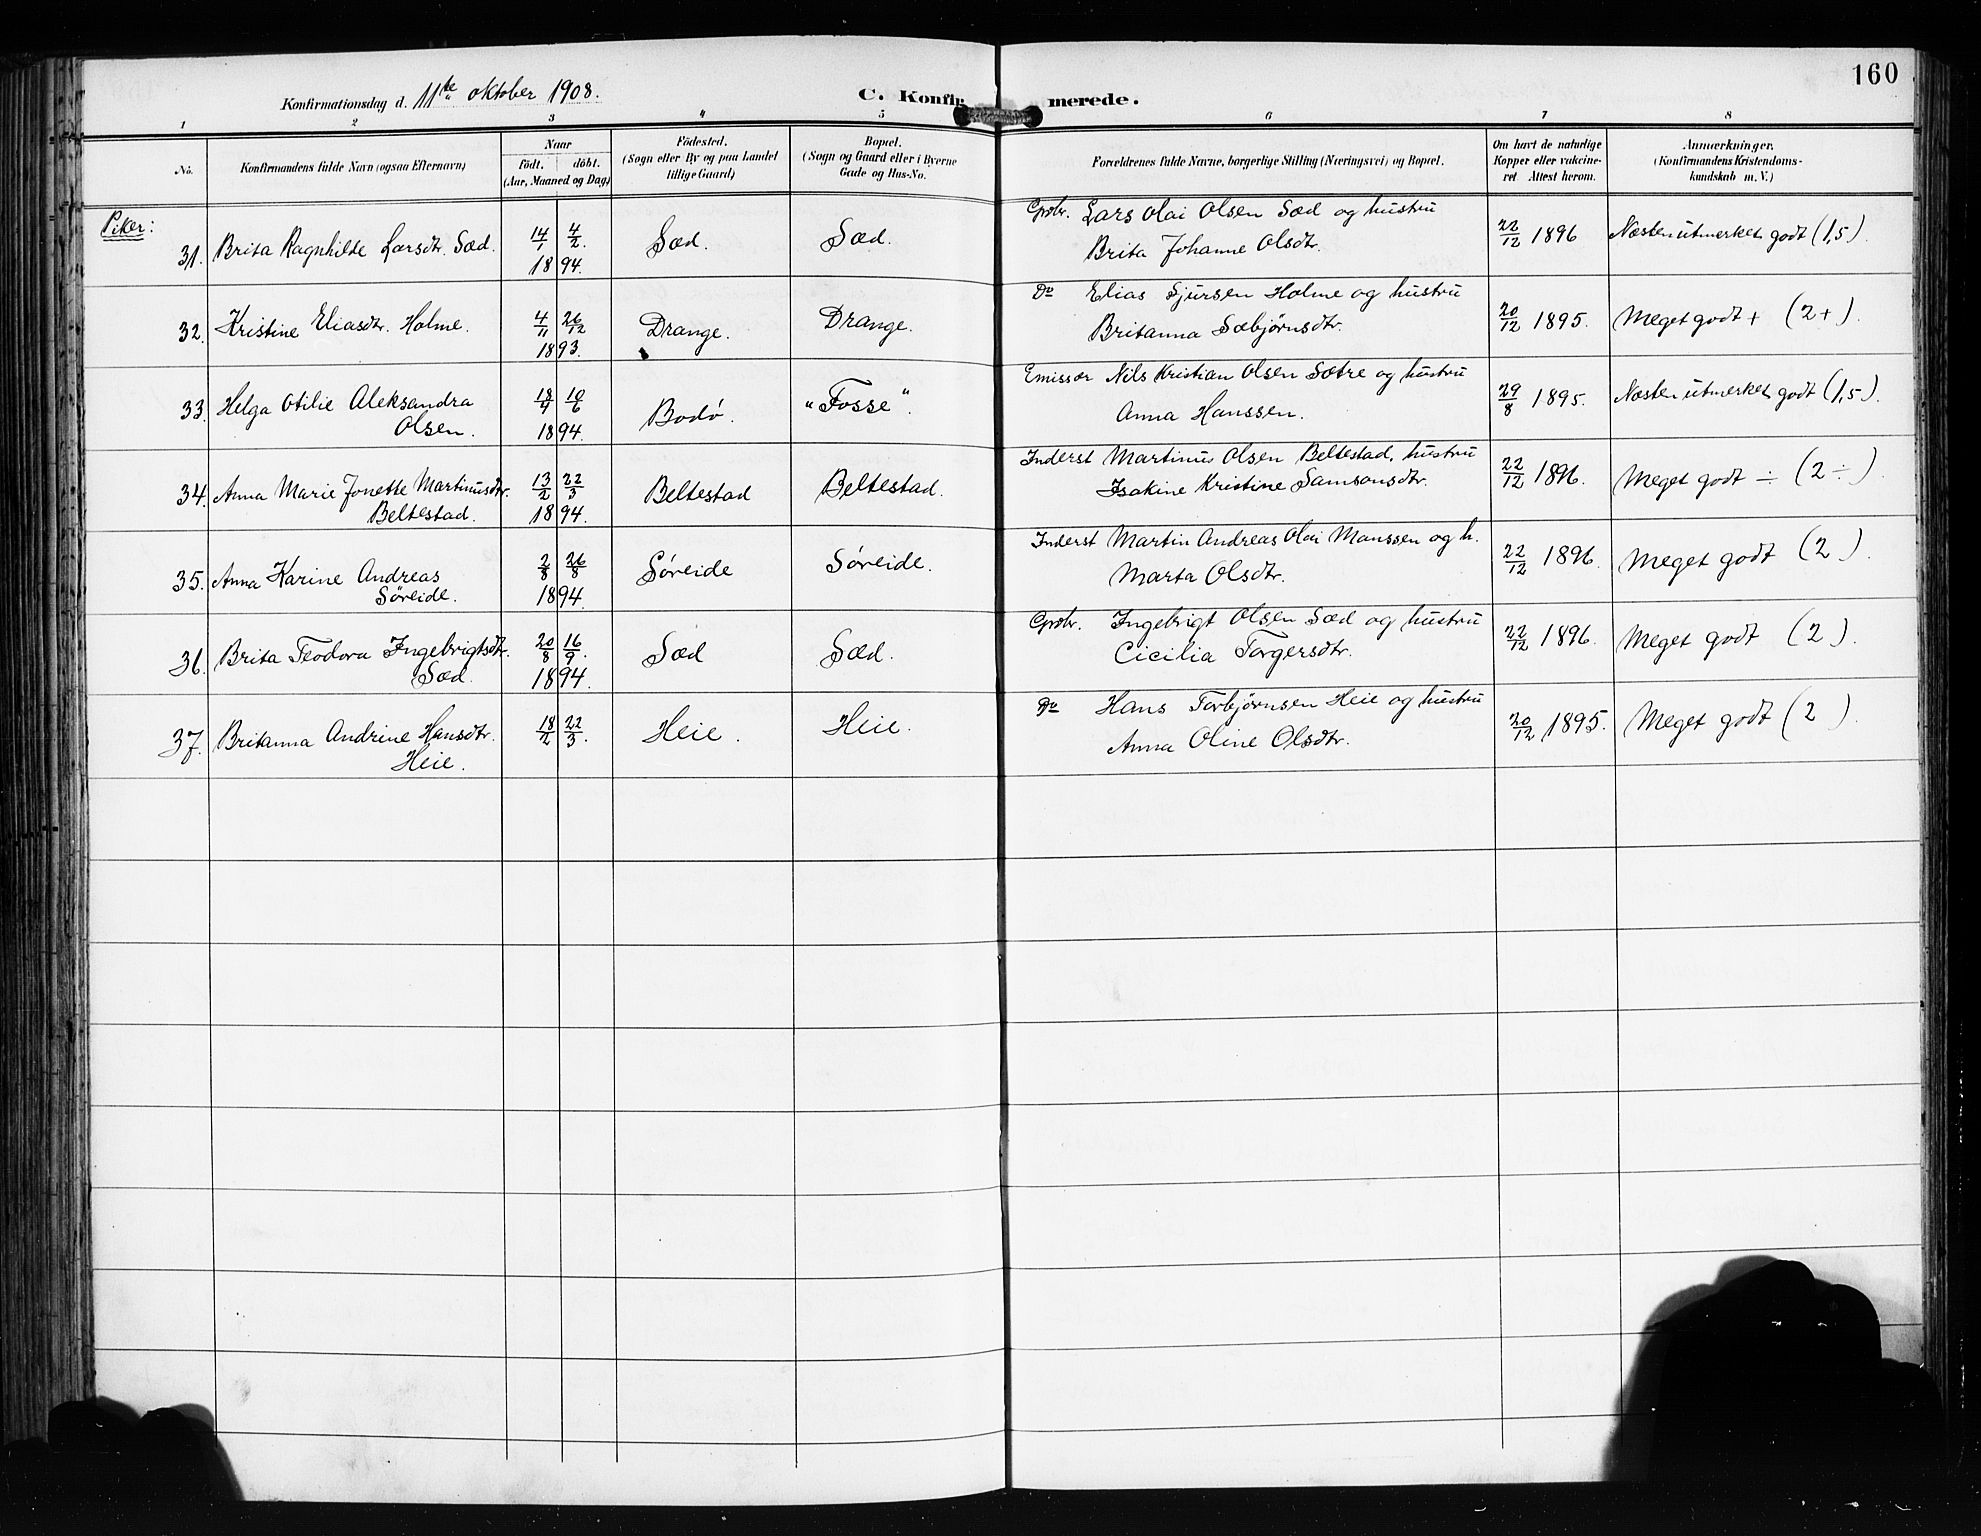 160
Konfirmationsdag d. 11te oktober 1908.
C. Konfirmerede.
1 2 3 4 5 6 7 8
No.
Konfirmandens fulde Navn (ogsaa Efternavn)
Naar
födt. döbt.
(Aar, Maaned og Dag)
Födested.
(Sogn eller By og paa Landet
tillige Gaard)
Bopæl.
(Sogn og Gaard eller i Byerne
Gade og Hus-No.
Forældrenes fulde Navne, borgerlige Stilling (Næringsvei) og Bopæl.
Om havt de naturlige
Kopper eller vakcine-
ret Attest herom.
Anmærkninger.
(Konfirmandens Kristendoms-
kundskab m. V.)
Piker:
31. Brita Ragnhilde Larsdtr. Sæd. 14/1 4/2 1894. Sæd. Sæd. Grbr. Lars Olai Olsen Sæd og hustru
Brita Johanne Olsdtr. 22/12 1896 Næsten utmerket godt (1,5).
32. Kristine Eliasdtr. Holme. 4/11 26/12 1893. Drange. Drange. Do Elias Sjursen Holme og hustru
Britanna Sæbjørnsdtr. 20/12 1895. Meget godt + (2+).
33. Helga Otilie Aleksandra
Olsen. 18/4 10/6 1894. Bodø. "Fosse". Emissær Nils Kristian Olsen Sætre og hustru
Anna Hanssen. 29/8 1895. Næsten utmerket godt (1,5).
34. Anna Marie Jonette Martinusdtr.
Beltestad. 13/2 22/3 1894. Beltestad Beltestad. Inderst Martinus Olsen Beltestad, hustru
Isakine Kristine Samsonsdtr. 22/12 1896. Meget godt ÷ (2 ÷).
35. Anna Karine Andreas
Søreide. 2/8 26/8 1894. Søreide Søreide. Inderst Martin Andreas Olai Manssen og h.
Marta Olsdtr. 22/12 1896. Meget godt (2).
36. Brita Teodora Ingebrigtsdtr.
Sæd. 20/8 16/9. 1894. Sæd Sæd. Grbr. Ingebrigt Olsen Sæd og hustru
Cicilia Torgersdtr. 22/12 1896. Meget godt (2).
37. Britanna Andrine Hansdtr.
Heie. 18/2 22/3. Heie. Heie. Do Hans Torbjørnsen Heie og hustru
Anna Oline Olsdtr. 20/12 1895. Meget godt (2).